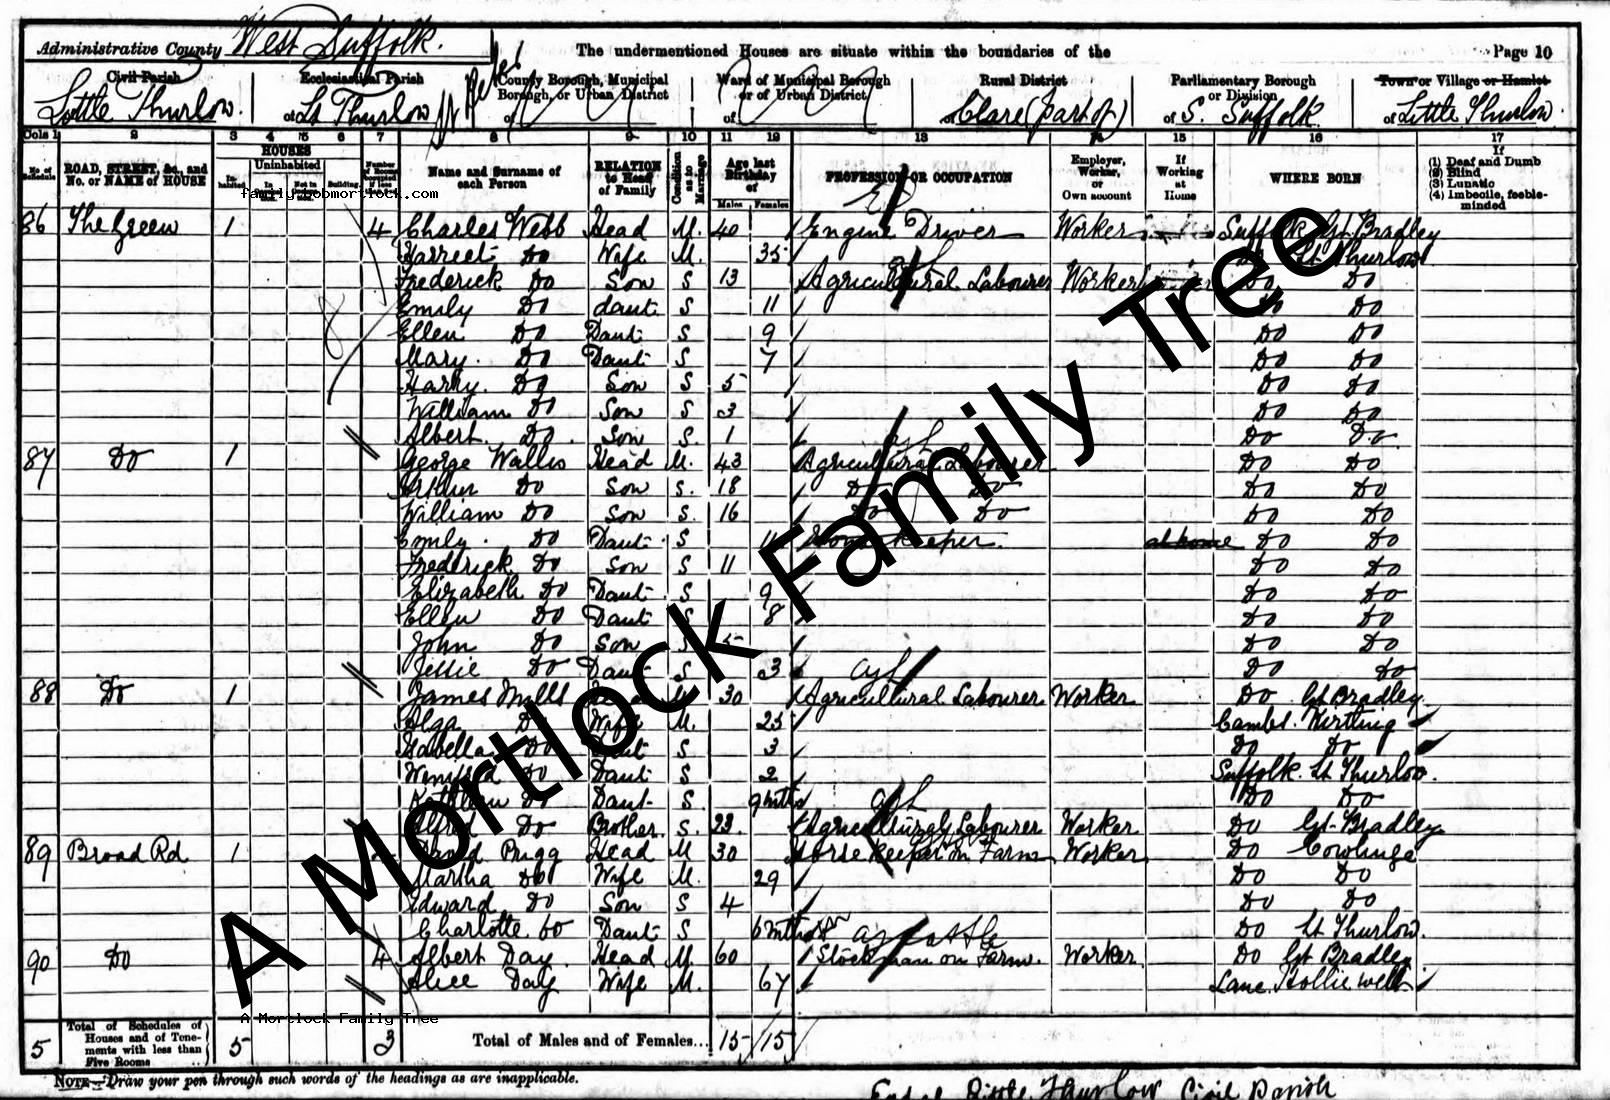 Administrative County West Suffolk. The undermentioned Houses are situate within the boundaries of the Page 10
Civil Parish Ecclesiastical Parish County Borough, Municipal Borough, or Urban District Ward of Municipal Borough or of Urban District Rural District Parliamentary Borough or Division Town or Village or Hamlet
Little Thurlow. of Lt Thurlow St Peter of of of Clare (part of) of S. Suffolk of Little Thurlow.
Cols 1 2 3 4 5 6 7 8 9 10 11 12 13 14 15 16 17
No. of Schedule ROAD, STREET, &c., and No. or NAME of HOUSE HOUSES Inhabited Uninhabited Building. Name and Surname of each Person RELATION to Head of Family Condition as to Marriage Age last Birthday of Males Females PROFESSION OR OCCUPATION Employer, Worker, or Own account If Working at Home WHERE BORN If (1) Deaf and Dumb (2) Blind (3) Lunatic (4) Imbecile, feeble-minded
family.robmortlock.com
86 The Green 1 4 Charles Webb Head M. 40 Engine Driver Worker Suffolk Gt. Bradley
Harriet Do Wife M. 35 Do Lt Thurlow
Frederick Do Son S 13 Agricultural Labourer Worker Do Do
Emily Do daut. S 11 Do Do
Ellen Do Daut S 9 Do Do
Mary. Do Daut S 7 Do Do
Harry. Do Son S 5 Do Do
William Do Son S 3 Do Do
Albert. Do. Son S. 1 Do Do
87 Do 1 George Wallis Head M. 43 Agricultural Labourer Do Do
Arthur Do Son S. 18 Do Do Do Do
William Do Son S. 16 Do Do Do Do
Emily. Do Daut. S Housekeeper. at home Do Do
Frederick. Do Son S 11 Do Do
Elizabeth Do Daut S 9 Do Do
Ellen Do Daut S 8 Do Do
John Do Son S 5 Do Do
Jessie Do Daut S 3 Do Do
88 Do 1 James Mills Head M 30 Agricultural Labourer Worker Do Gt Bradley
Olga Do Wife M. 25 Cambs. Kirtling
Isabella Do Daut S 3 Do Do
Winifred Do Daut S 2 Suffolk. Lt Thurlow.
Kathleen Do Daut. S. 9 mths Do Do
Alfred Do Brother. S. 23. Agricultural Labourer Worker Do Gt. Bradley
89 Broad Rd 1 David Prigg Head M 30 Horse keeper on Farm Worker Do Cowlinge
Martha Do Wife M. 29 Do Do
Edward Do Son S 4 Do Do
Charlotte Do Daut S 6 mths Do Lt Thurlow.
90 Do 4 Albert Day. Head M. 60 Stockman on Farm. Worker Do Gt Bradley
Alice Day Wife M. 67 Lanc. Hollie well
A Mortlock Family Tree
A Mortlock Family Tree
5 Total of Schedules of Houses and of Tenements with less than Five Rooms 5 3 Total of Males and of Females... 15 15
NOTE—Draw your pen through such words of the headings as are inapplicable.
Little Thurlow Civil Parish